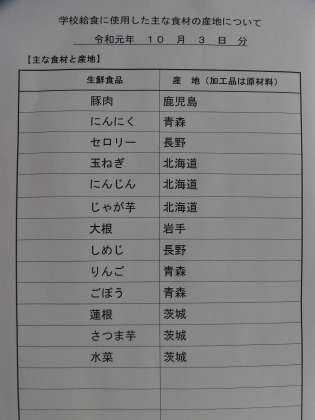 学校給食に使用した主な食材の産地について
令和元年 １０ 月 ３ 日 分
【主な食材と産地】
生鮮食品 産 地（加工品は原材料）
豚肉 鹿児島
にんにく 青森
セロリー 長野
玉ねぎ 北海道
にんじん 北海道
じゃが芋 北海道
大根 岩手
しめじ 長野
りんご 青森
ごぼう 青森
蓮根 茨城
さつま芋 茨城
水菜 茨城